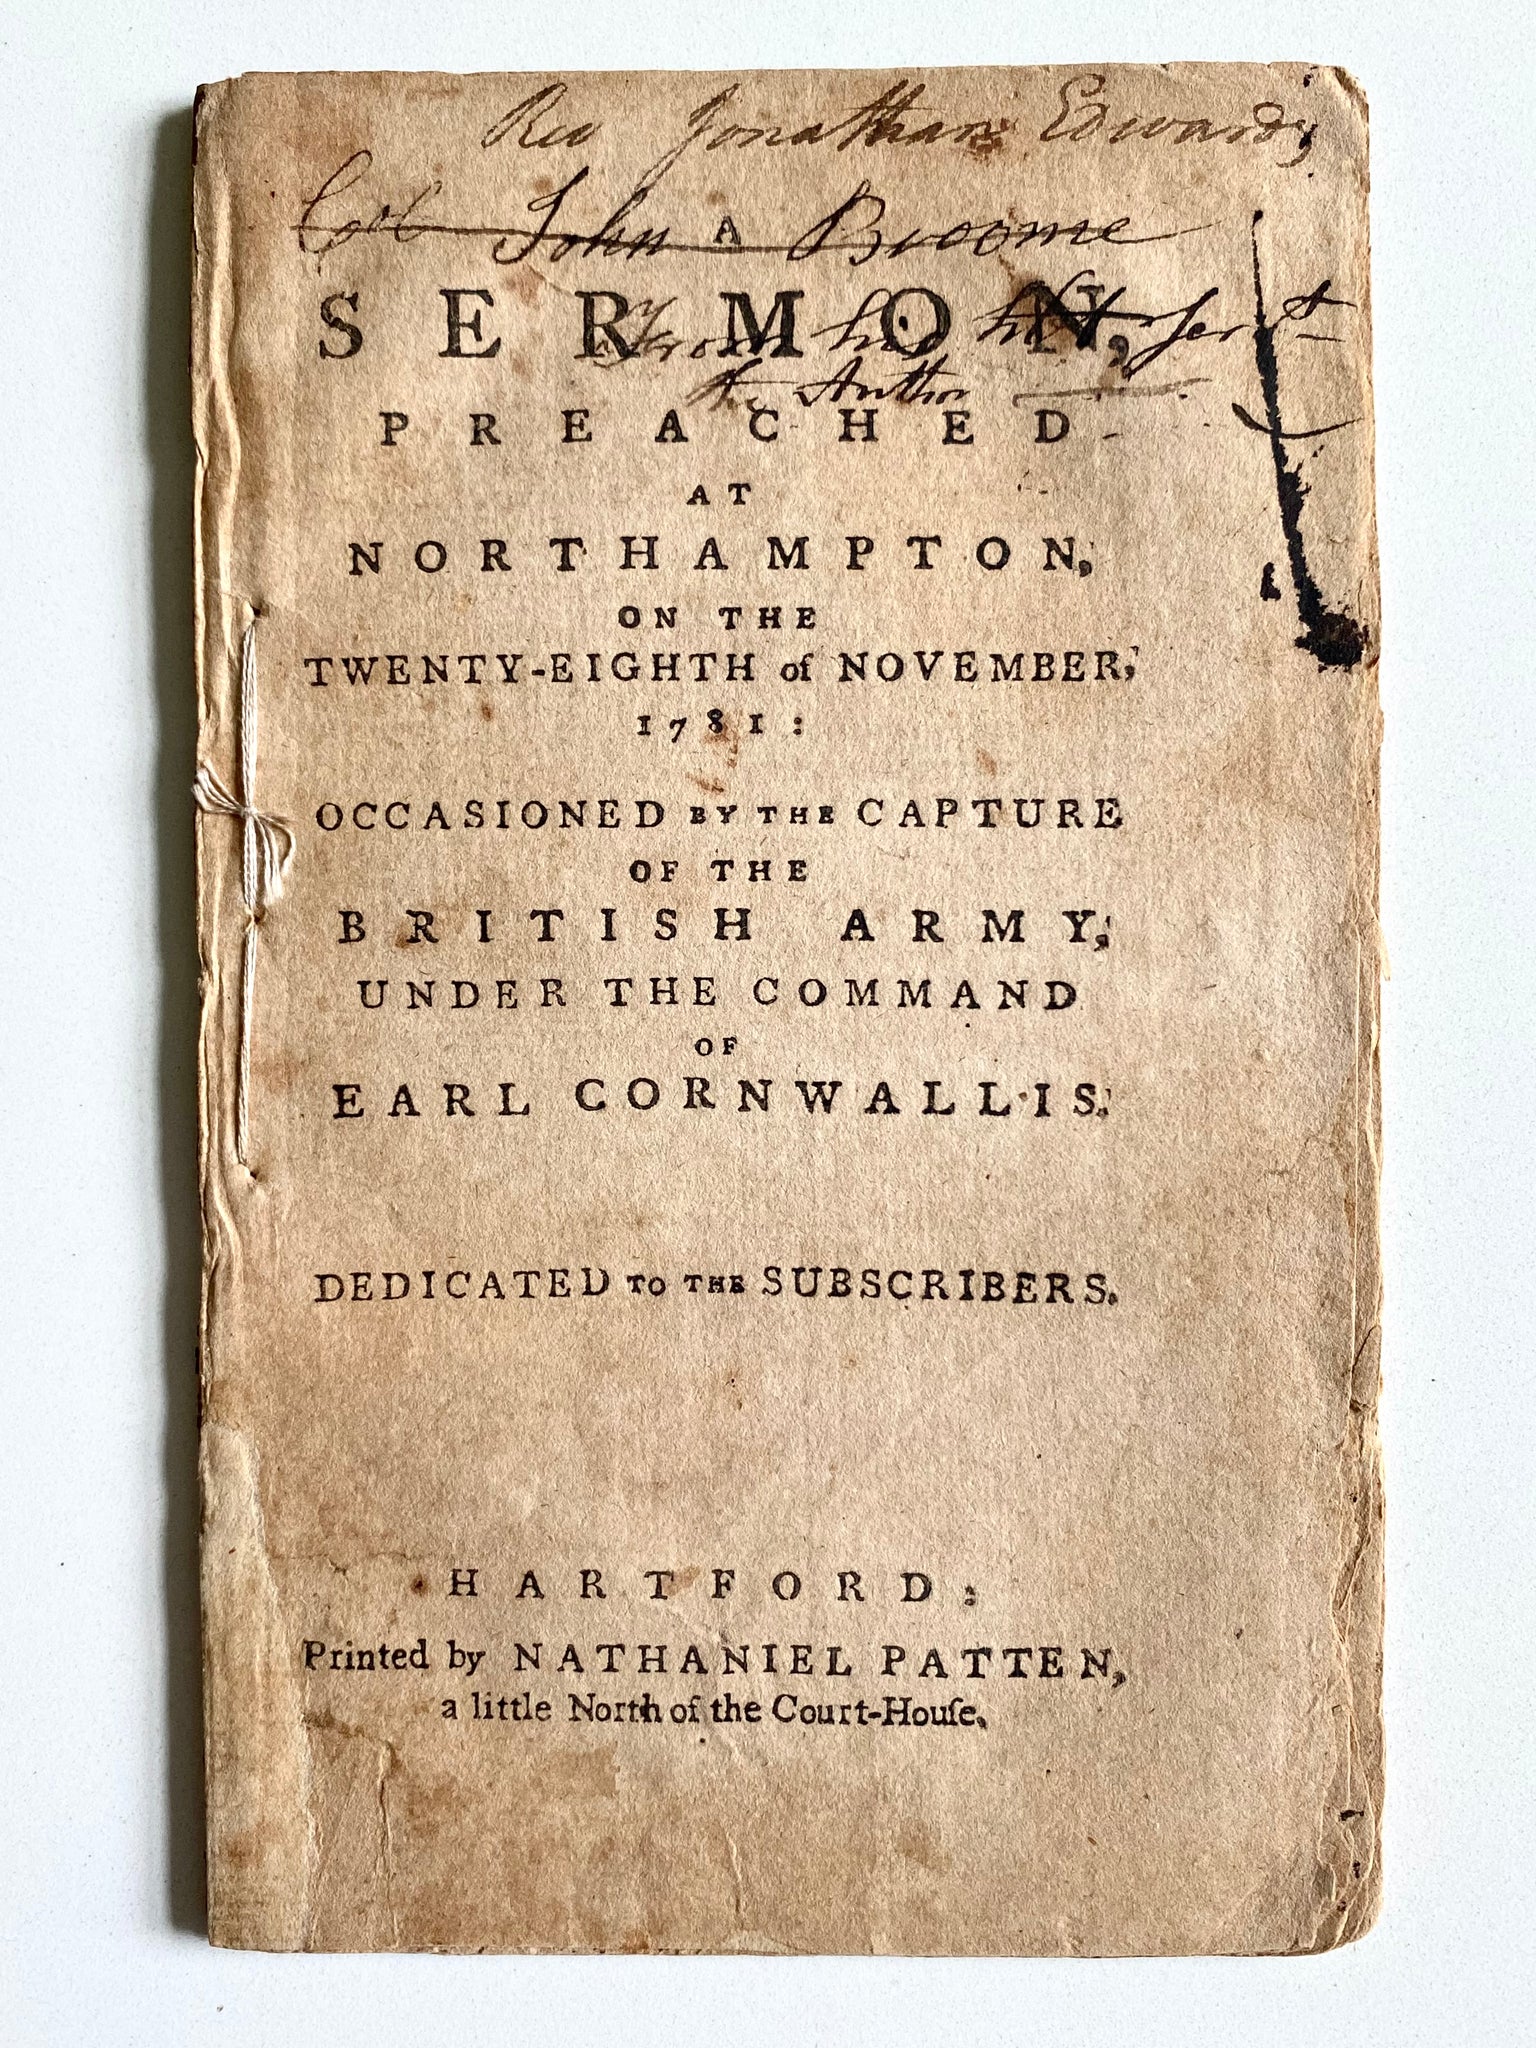 Rev Jonathan Edwards
Col John Broome
A
SERMON,
From his h̶ servt
the Author
PREACHED
AT
NORTHAMPTON,
ON THE
TWENTY-EIGHTH of NOVEMBER,
1781:
OCCASIONED BY THE CAPTURE
OF THE
BRITISH ARMY,
UNDER THE COMMAND
OF
EARL CORNWALLIS.
DEDICATED TO THE SUBSCRIBERS.
HARTFORD:
Printed by NATHANIEL PATTEN,
a little North of the Court-Houſe.